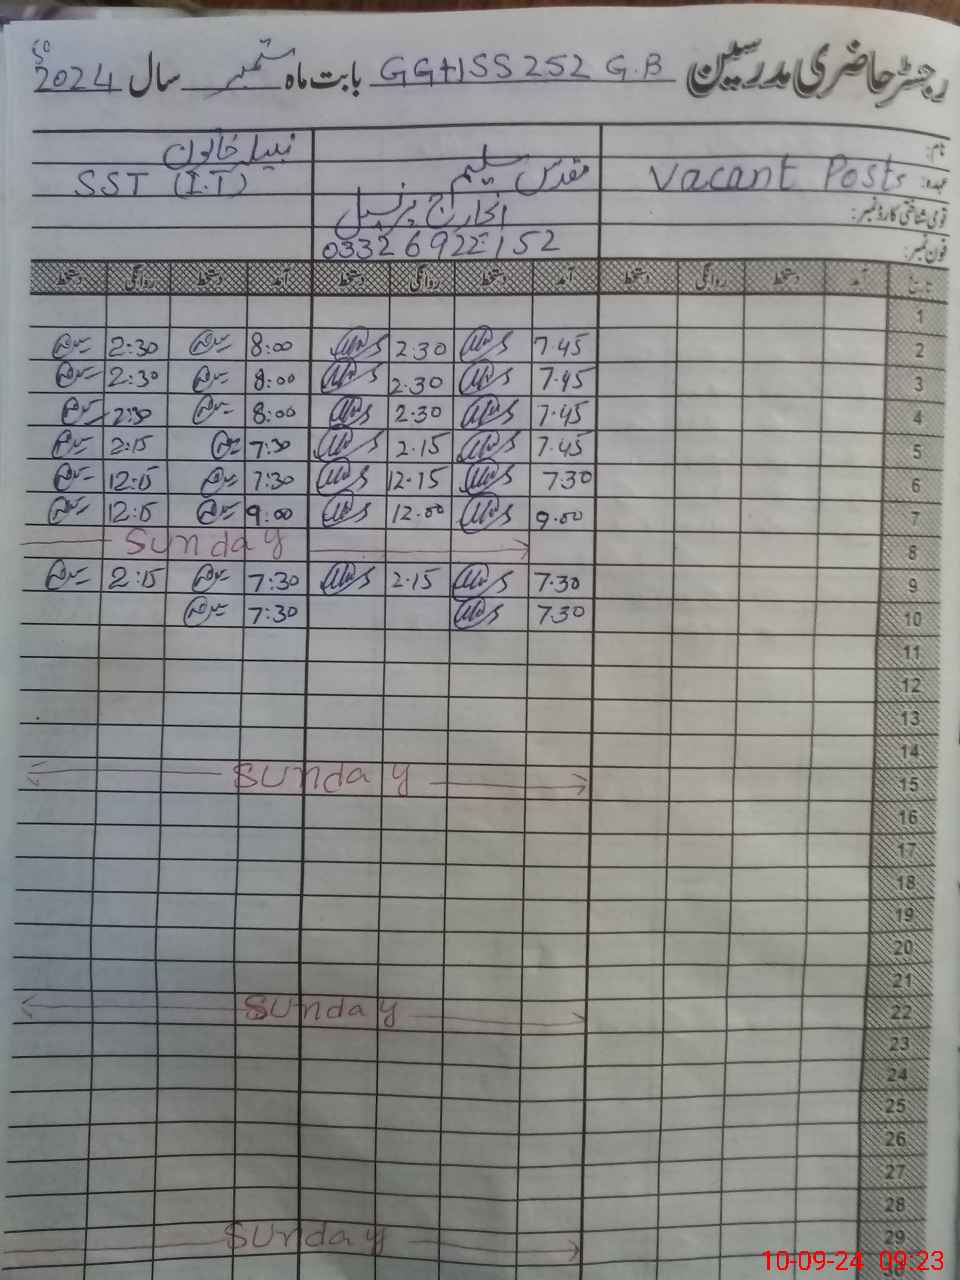 رجسٹر حاضری مدرسین GGHSS 252 G.B بابت ماہ ستمبر سال 2024
نام:
عہدہ: Vacant Posts مقدس سلیم SST (I.T)
قومی شناختی کارڈ نمبر: انچارج پرنسپل
فون نمبر: 0332 6922152
تاریخ آمد دستخط روانگی دستخط آمد دستخط روانگی دستخط آمد دستخط روانگی دستخط
1
2 7.45 2.30 8:00 2:30
3 7.45 2.30 8:00 2:30
4 7.45 2.30 8:00 2:30
5 7.45 2.15 7:30 2:15
6 7.30 12.15 7:30 12:15
7 9.00 12.00 9:00 12:15
8 Sunday
9 7.30 2.15 7:30 2:15
10 7.30 7:30
11
12
13
14
15 Sunday
16
17
18
19
20
21
22 Sunday
23
24
25
26
27
28
29 Sunday
30
10-09-24 09:23